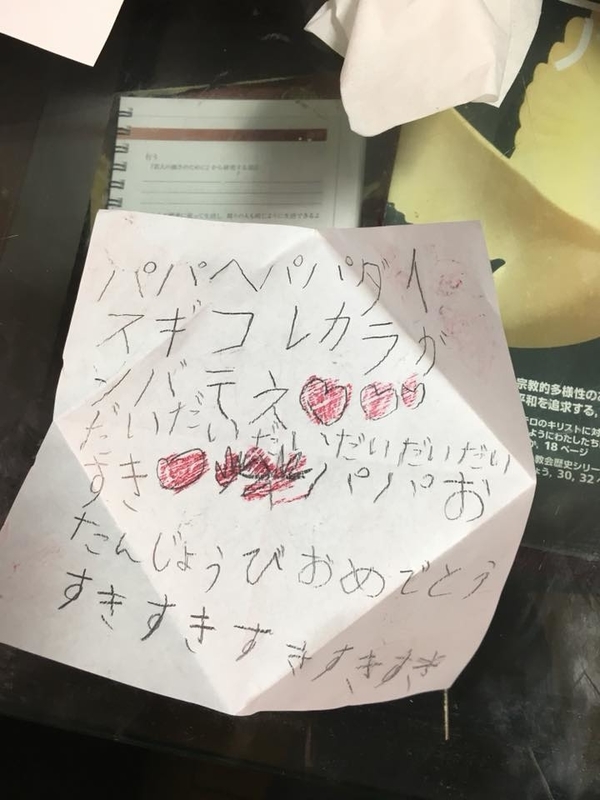 パパヘパパダイ
スギコレカラガ
ンバテネ
だいだいだいだいだいだい
すき パパお
たんじょうびおめでとう
すきすきすきすきすき
行う
宗教的多様性の
平和を追求する,
ようにわたしたち
か. 18 ページ
教会歴史シリー
よう, 30, 32